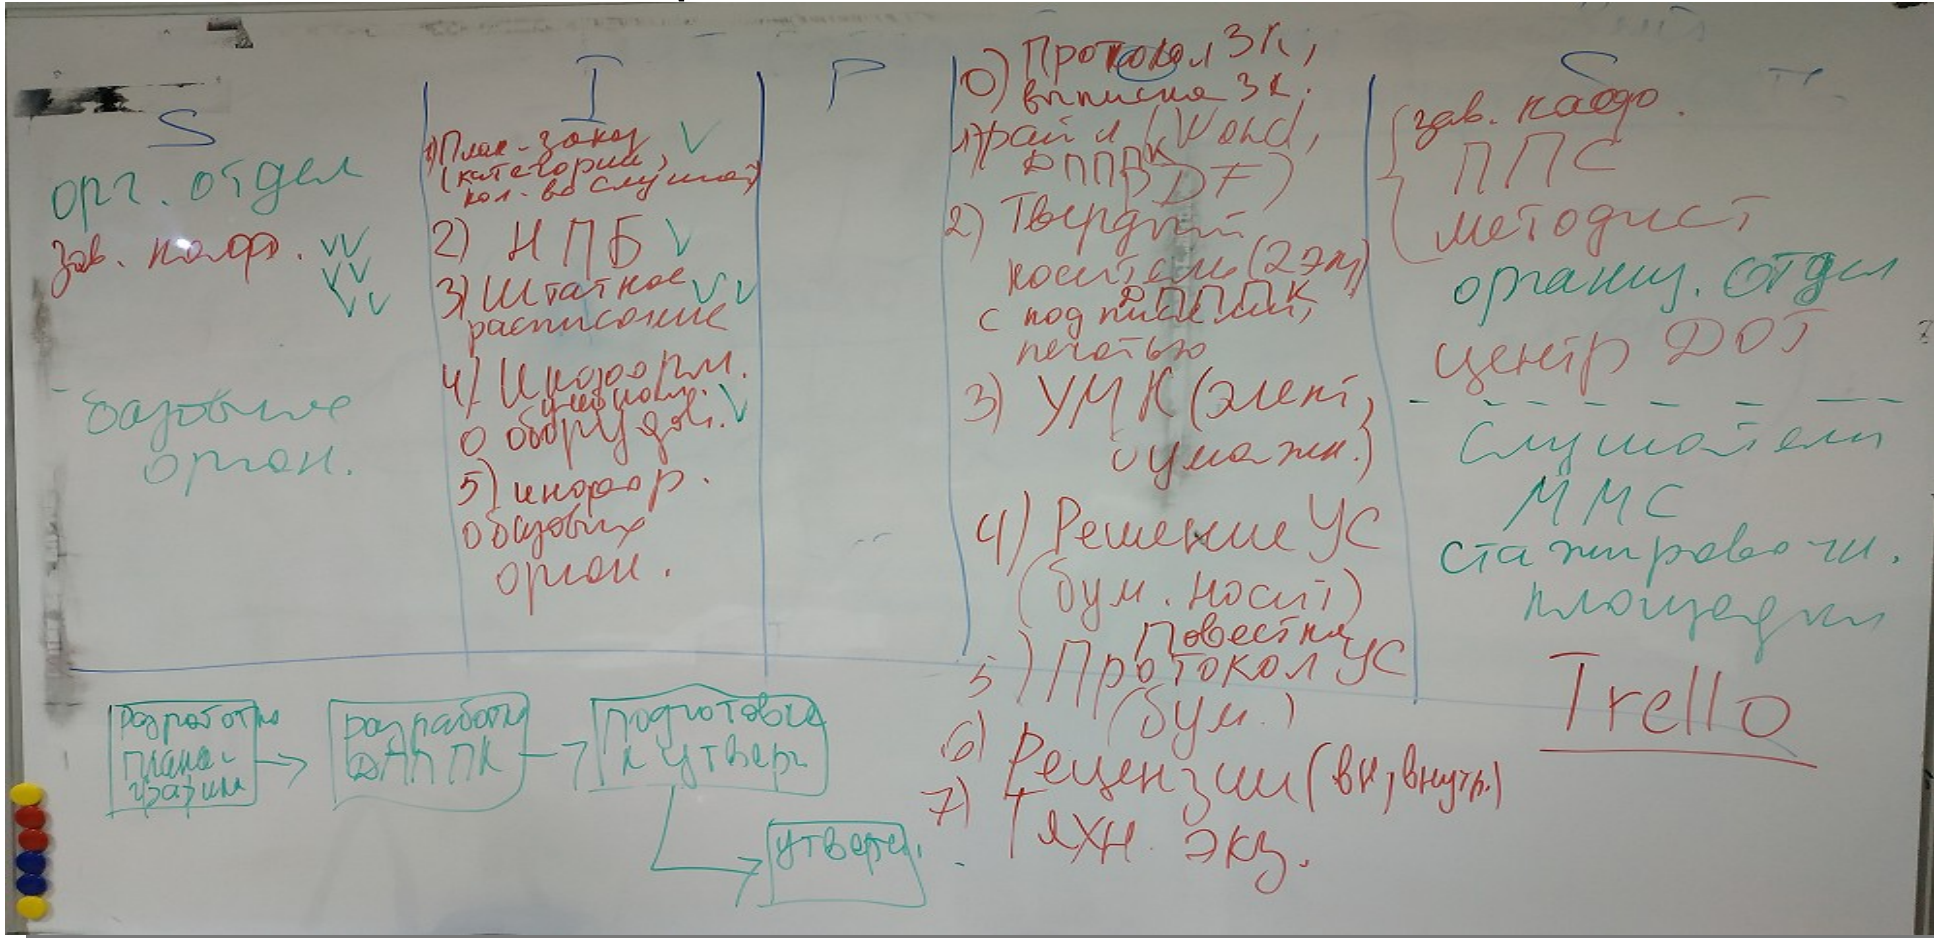 S
орг. отдел
зав. кафр. VV
VV
VV
базовые
орган.
I
1) План-заказ V
(категории,
кол-во слушат)
2) НПБ V
3) Штатное VV
расписание
4) Информ.
о оборудов. V
5) информ.
о базовых
орган.
P
0) Протокол ЗК,
выписка ЗК.
1) файл (Word,
ДППК
PDF)
2) Твердый
носитель (2 экз)
ДПППК
с подписями,
печатью
3) УМК (элект,
бумажн.)
4) Решение УС
(бум. носит)
Повестка
5) Протокол УС
(бум.)
6) Рецензии (вн, внутр.)
7) Техн. экз.
S
зав. кафр.
ППС
методист
организ. отдел
центр ДОТ
слушатели
ММС
стажировочн.
площадки
Trello
разработка
плана-
графика
разработка
ДПП ПК
подготовка
к утверж
утвержд.